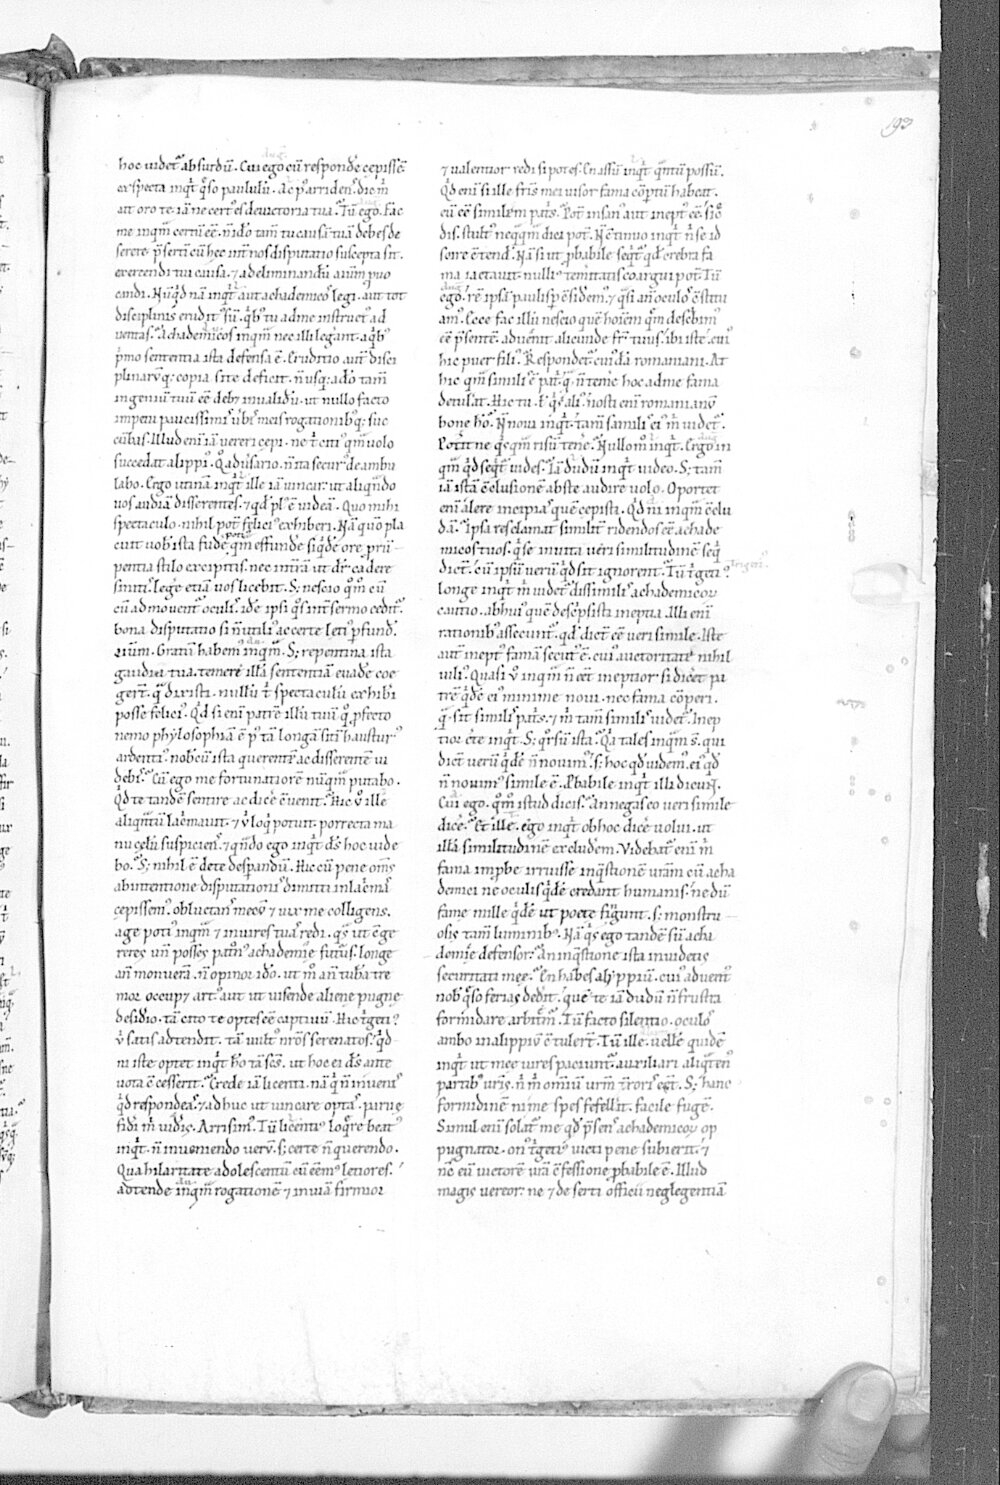 193
hoc uidet᷒ absurdū. Cui ego cū respondē cepissē.
exspecta inqt̄ q̄so paululū. Ac p᷒ arridens. dic m̄
ait oro te. iā ne certꝰ es de uictoria tua. Tū ego. Fac
me inqm̄ certū eē. n̄ ido tam̄ tu causā tuā debes de
serere. p̄sertī cū hec int̄ nos disputatio suscepta sit.
exercendi tui causa. ⁊ ad eliminandū animū puo
candi. Nūqd̄ nā inqt̄ aut achademicoꝰ legi. aut tot
disciplinis eruditꝰ sū. qb᷒ tu ad me instructꝰ ad
uentas. Achademicos inqm̄ nec illi legerant. a qb᷒
p̄mo sententia ista defensa ē. Eruditio aut̄ disci
plinarūq; copia si te deficit. n̄ usq; adō tam̄
ingeniū tuū eē deb᷒ inualidū. ut nullo facto
impetu paucissimis ūbis meis rogationibꝰq; suc
cūbas. Illud enī iā uereri cepi. ne t̄ citiꝰ qm̄ uolo
succedat alippiꝰ. Q̄ aduersario. n̄ ita securꝰ deambu
labo. Ergo utinā inqt̄ ille iā uincar. ut aliqn̄do
uos audiā disserentes. ⁊ qd̄ plꝰ ē uideā. Quo mihi
spectaculo. nihil pot̄ feliciꝰ exhiberi. Nā quō pla
cuit uob ista fudē. potiꝰ qm̄ effundē. siqdē ore prū
pentia stilo excipitis. nec in t̄rā ut dr̄. cadere
sinitis. legē etiā uos licebit. S; nescio qm̄ cū
cū admouent᷒ oculis. idē ipsi q̄s int̄ sermo cedit᷒.
bona disputatio si n̄ utiliꝰ ac certe letiꝰ p̄fund᷒.
aium. Gratū habemꝰ inqm̄. S; repentina ista
gaudia tua. temere illā sententiā euadē coe
gert̄. q̄ dixisti. nullū t̄ spectaculū exhibi
posse feliciꝰ. Qd̄ si enī patrē illū tuū q̄ p̄fecto
nemo phylosophiā ē p᷒ tā longā sitī hausturꝰ
ardentiꝰ. nobcū ista querentē ac disserentē ui
debis. Cū ego me fortunatiorē nūqm̄ putabo.
Qd̄ te tandē sentire ac dicē ē uenit. Hic ū ille
aliqn̄tū lac̄mauit. ⁊ ū loq̄ potuit. porrecta ma
nu celū suspiciens. ⁊ qn̄do ego inqt̄ d̄s hoc uide
bo. S; nihil ē de te desperandū. Hic cū pene om̄s
ab intentione disputationis dimitti in lac̄mas
cepissemꝰ. obluctans mecū ⁊ uix me colligens.
age potiꝰ inqm̄ ⁊ in uires tuas redi. q̄s ut ē ge
reres un̄ posses patn̄ꝰ achademie futurꝰ. longe
an̄ monuerā. n̄ opinor idō. ut m̄ an̄ tubā tre
mor occupꝫ artꝰ. aut ut uisende aliene pugne
desidio. tā cito te optes eē captiuū. Hic t̄getiꝰ
ū satis adtendit. tā uultꝰ nr̄os serenatos. qd̄
ni iste optet inqt̄ hō tā scs̄. ut hoc ei d̄s ante
uota ē cesserit. Crede iā licenti. nā q̄ n̄ inuenis
qd̄ respondeas. ⁊ adhuc ut uincare optas. parue
fidi m̄ uidis. Arrisimꝰ. Tū licentiꝰ. loq̄re beatꝰ
inqt̄. n̄ inueniendo uerū. s; certe n̄ querendo.
Qua hilaritate adolescentū cū eēmꝰ letiores.
adtende inqm̄ rogationē ⁊ in uiā firmior
⁊ ualentior redi si potes. En assū inqt̄ qn̄tū possū.
Qd̄ enī si ille fris̄ mei uisor fama cōptū habeat.
eū eē similem pat̄s. Pot̄ insanꝰ aut ineptꝰ eē. si cre
dis. stultꝰ neqqm̄ dici pot̄. N̄ ē tinuo inqt̄ n̄ se id
scire ē tend᷒. Nā si ut p̄babile seqt᷒ qd̄ crebra fa
ma iactauit. nulliꝰ temeritatis coargui pot̄. Tū
ego. rē ipsā paulisp̄ ē sidemꝰ. ⁊ q̄si an̄ oculos ē stitu
amꝰ. Ecce fac illū nescio quē hoiem qm̄ describimꝰ
eē p̄sentē. aduenit alicunde fr̄ tuus. ibi iste. cuiꝰ
hic puer filiꝰ. Respondet᷒. cuidā romaniani. At
hic qm̄ similis ē pat᷒. q̄ n̄ temē hoc ad me fama
detulat᷒. Hic tu. ł q̄s aliꝰ. nosti enī romanianū
bone hō. N̄ noui inqt̄. tam̄ similis eiꝰ m̄ uidet᷒.
Poterit ne q̄sqm̄ risū tenē. Nullo m̄ inqt̄. Ergo in
qm̄ qd̄ seqt᷒ uides. Iā dudū inqt̄ uideo. S; tam̄
iā istā ē clusionē abs te audire uolo. Oportet
enī alere incipias quē cepisti. Qd̄ ni inqm̄ ē clu
dā. Ipsa res clamat similit̄ ridendos eē achade
micos tuos. q̄ se in uita ueri similitudinē seq̄
dict̄. cū ipsū uerū qd̄ sit ignorent. Tū t̄getiꝰ
longe inqt̄ m̄ uidet᷒ dissimilis achademicoꝝ
cautio. ab huiꝰ quē descripsisti ineptia. Illi enī
rationibꝰ assecunt᷒. qd̄ dict̄ eē ueri simile. Iste
aut̄ ineptꝰ famā secutꝰ ē. cuiꝰ auctoritate nihil
uiliꝰ. Quasi ū inqm̄ n̄ eēt ineptior. si dicēt pa
trē qdē eiꝰ minime noui. nec fama cōperi.
q̄ sit similis pat̄s. ⁊ m̄ tam̄ similis uidet᷒. Inep
tior certe inqt̄. S; qrsū ista. Quia tales inqm̄ s̄. qui
dict̄ uerū qdē n̄ nouimꝰ. s; hoc qd̄ uidemꝰ. eiꝰ qd̄
n̄ nouimꝰ simile ē. P̄babile inqt̄ illi dicunt̄.
Cui ego. qm̄ istud dicis. An negas eo ueri simile
dicē. Et ille. ego inqt̄ ob hoc dicē uolui. ut
illā similitudinē excludem. Videbat᷒ enī m̄
fama improbe irruisse in qstionē uram̄ cū acha
demici ne oculis qdē credant humanis. ne dū
fame mille qdē ut poete fingunt. s; monstru
osis tam̄ luminibꝰ. Nā q̄s ego tandē sū acha
demie defensor. An in qstione ista inuidetis
securitati mee. En habes alyppiū. cuiꝰ aduentꝰ
nob q̄so ferias dedit. quē te iā dudū n̄ frusta
formidare arbitrm̄. Tū facto silentio. oculos
ambo in alippiū ē tulert̄. Tū ille. uellē quidē
inqt̄ ut mee uires paciunt᷒. auxiliari aliqtenꝰ
partibꝰ uris̄. n̄ m̄ om̄iū urm̄ t̄rori eēt. S; hanc
formidinē ni me spes fefellit. facile fugē.
Simul enī solat᷒ me qd̄ p̄sens achademicoꝝ op
pugnator. onꝰ t̄getiꝰ uicti pene subierit. ⁊
nc̄ cū uictorē urā ē fessione p̄babile ē. Illud
magis uereor. ne ⁊ deserti officii neglegentiā